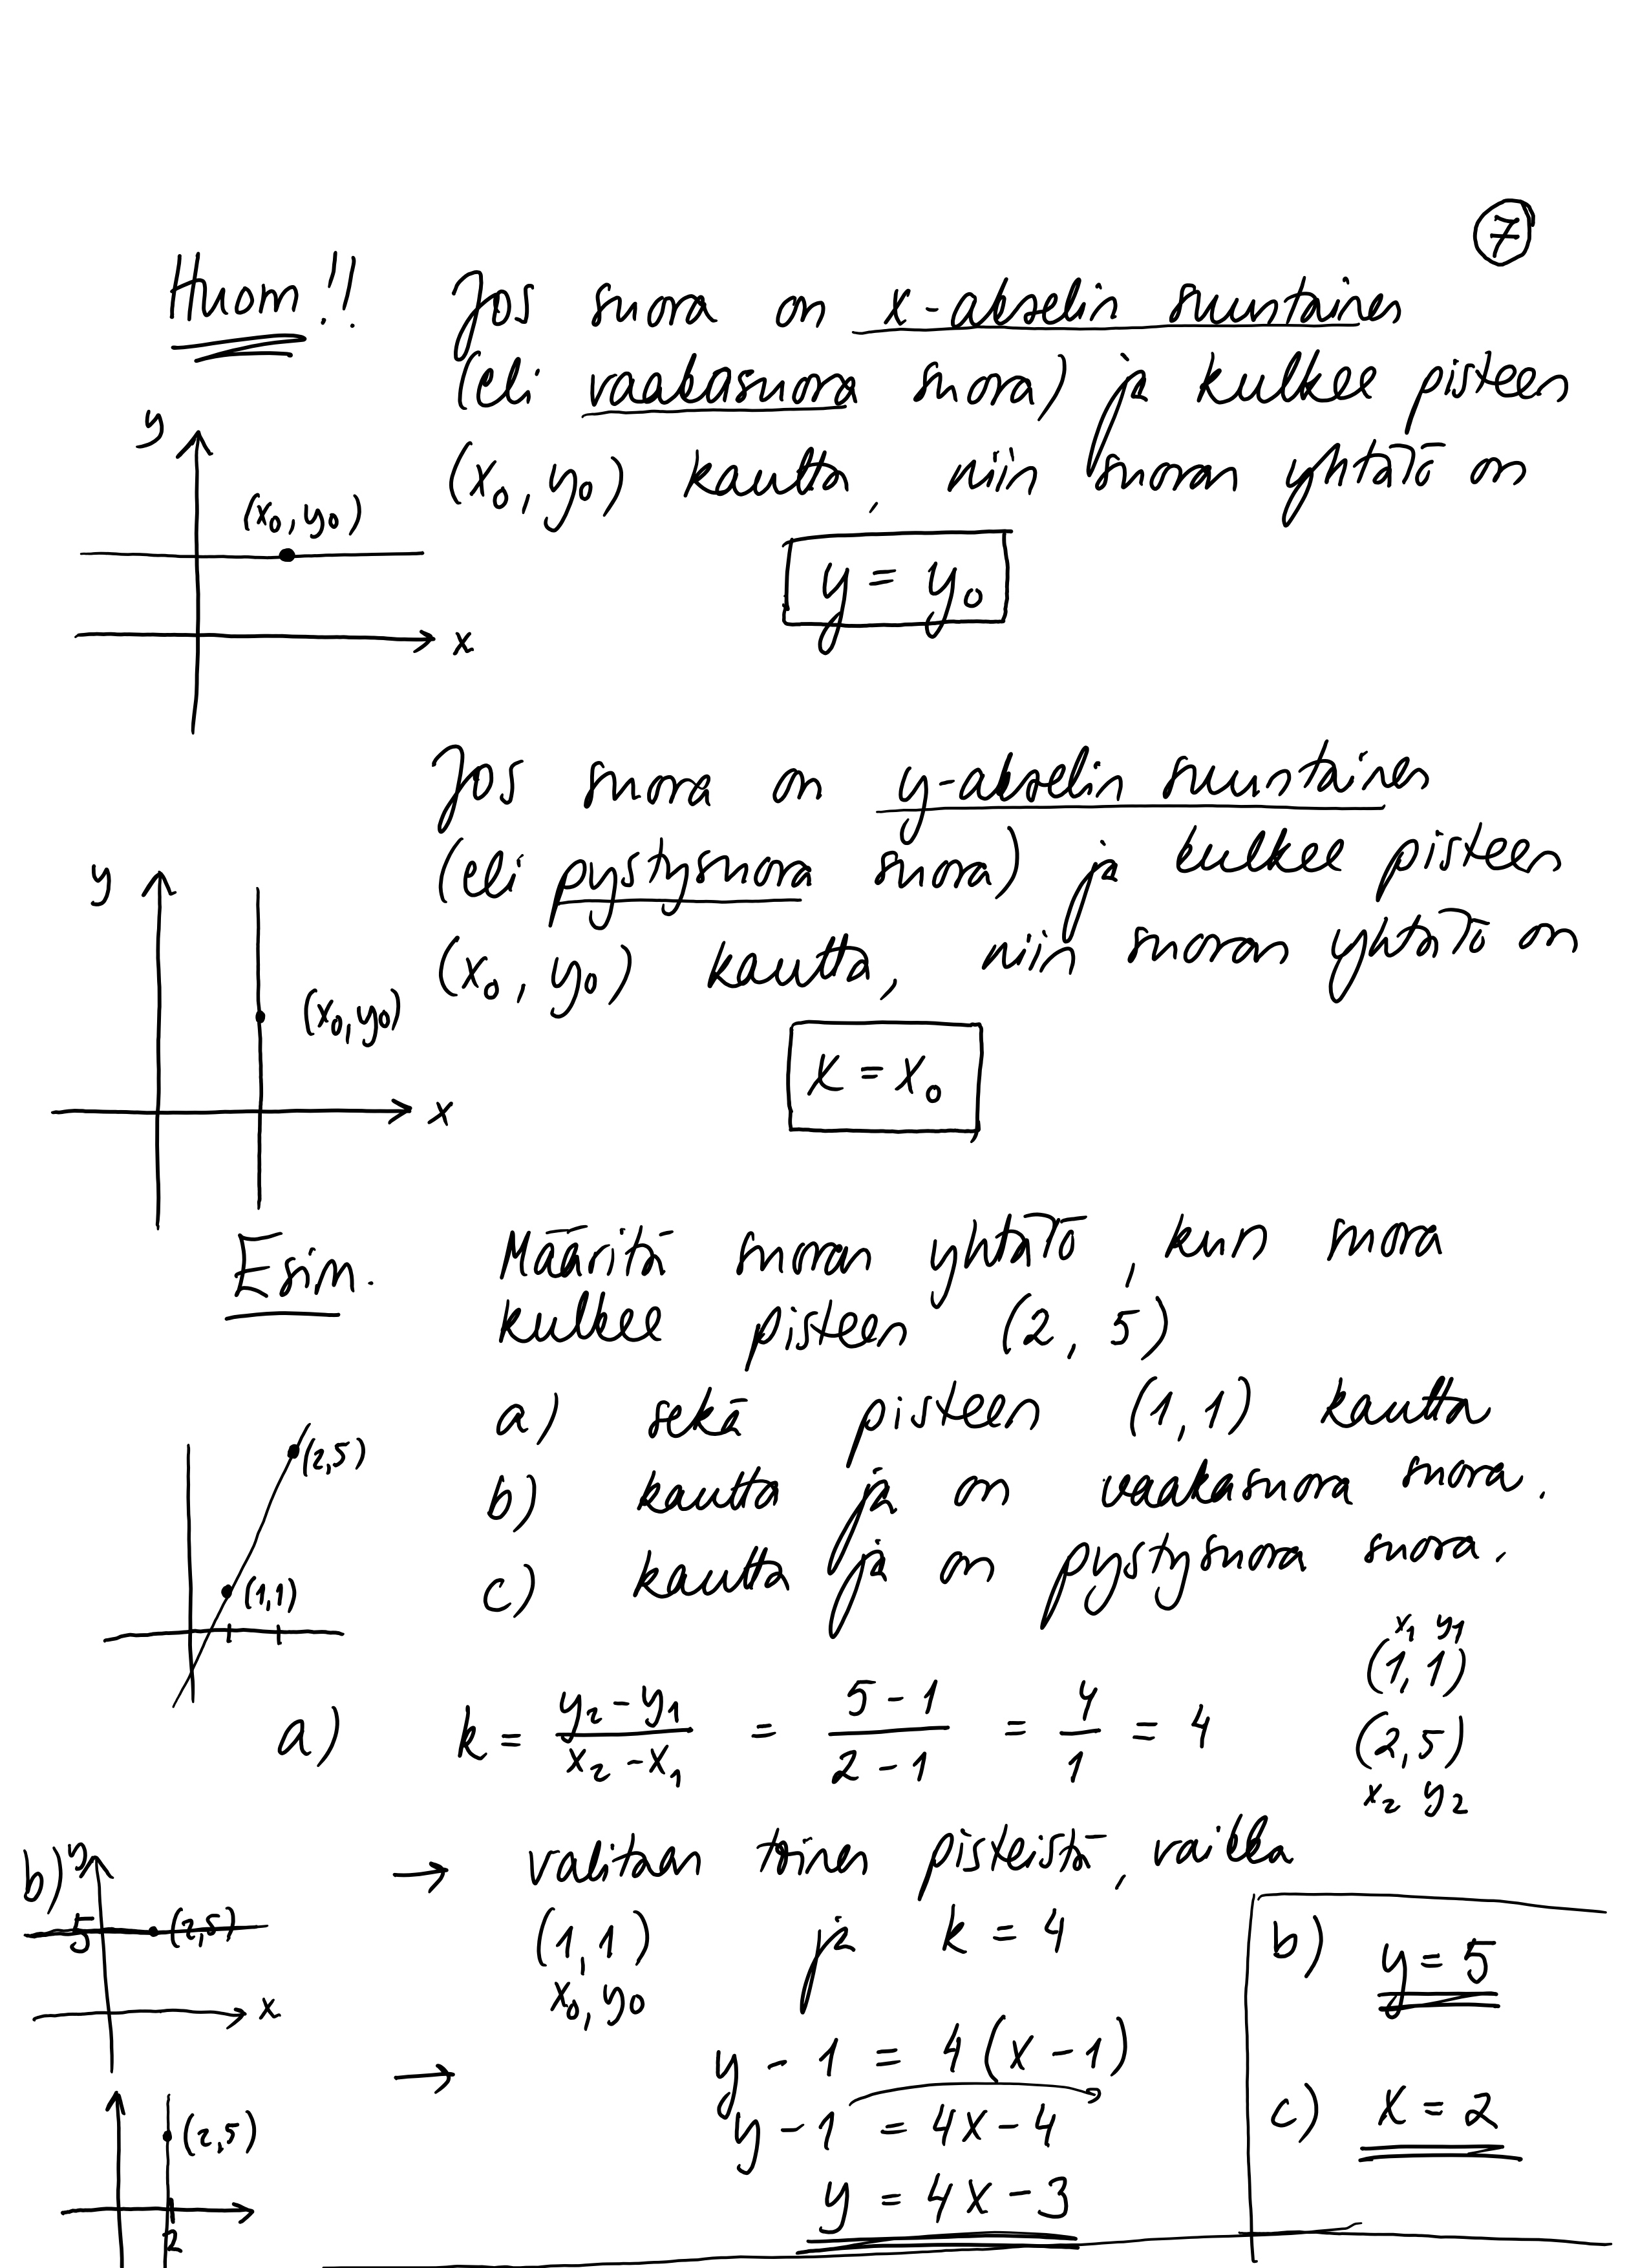 7
Huom!!
Jos suora on x-akselin suuntainen
(eli vaakasuora suora) ja kulkee pisteen
(x₀, y₀) kautta, niin suoran yhtälö on
y
(x₀, y₀)
x
y = y₀
Jos suora on y-akselin suuntainen
(eli pystysuora suora) ja kulkee pisteen
(x₀, y₀) kautta, niin suoran yhtälö on
y
(x₀, y₀)
x
x = x₀
Esim. Määritä suoran yhtälö, kun suora
kulkee pisteen (2, 5)
a) sekä pisteen (1, 1) kautta
b) kautta ja on vaakasuora suora.
c) kautta ja on pystysuora suora.
(2,5)
(1,1)
x₁ y₁
(1, 1)
(2, 5)
x₂ y₂
a) k = (y₂ - y₁)/(x₂ - x₁) = (5 - 1)/(2 - 1) = 4/1 = 4
→ valitaan toinen pisteistä, vaikka
(1, 1) ja k = 4
x₀, y₀
→ y - 1 = 4(x - 1)
y - 1 = 4x - 4
y = 4x - 3
b) y
5 (2,5)
x
(2,5)
2
b) y = 5
c) x = 2